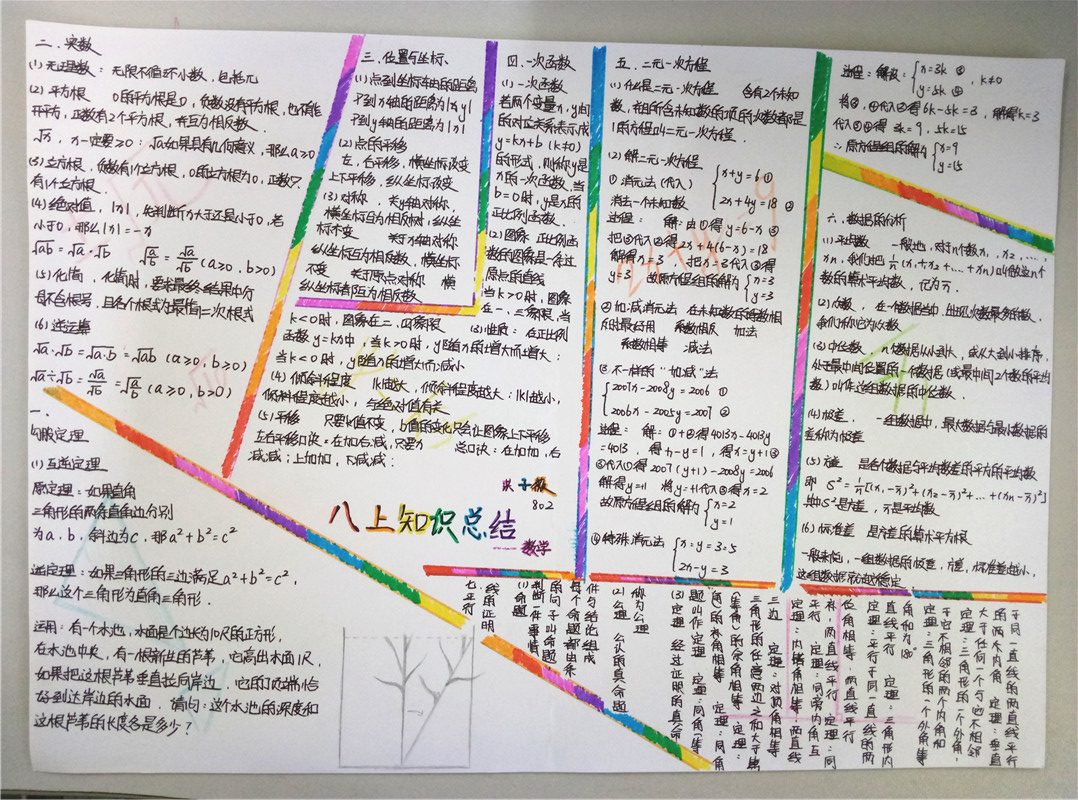 二．实数
(1) 无理数：无限不循环小数，包括π
(2) 平方根 0的平方根是0，负数没有平方根，也不能
开平方，正数有2个平方根，并互为相反数．
√x，x一定要≥0；√a如果具有几何意义，那么a≥0
(3) 立方根，负数有1个立方根，0的立方根为0，正数只
有1个立方根．
(4) 绝对值，|x|，先判断x大于还是小于0，若
小于0，那么|x|=-x
√ab=√a·√b √a/b=√a/√b (a≥0，b>0)
(5) 化简，化简时，要求最终结果中分
母不含根号，且各个根式为最简二次根式
(6) 逆运算
√a·√b=√a·b=√ab (a≥0，b≥0)
√a÷√b=√a/√b=√a/b (a≥0，b>0)
一．
勾股定理
(1) 互逆定理
原定理：如果直角
三角形的两条直角边分别
为a．b，斜边为c，那a²+b²=c²
逆定理：如果三角形的三边满足a²+b²=c²，
那么这个三角形为直角三角形．
运用：有一个水池，水面是个边长为10尺的正方形，
在水池中央，有一根新生的芦苇，它高出水面1尺，
如果把这根芦苇垂直拉向岸边，它的顶端恰
好到达岸边的水面．请问：这个水池的深度和
这根芦苇的长度各是多少？
三．位置与坐标
(1) 点到坐标轴的距离
P到x轴的距离为|y|
P到y轴的距离为|x|
(2) 点的平移
左，右平移，横坐标改变
上下平移，纵坐标改变
(3) 对称，关y轴对称，
横坐标互为相反数，纵坐
标不变 关于x轴对称
纵坐标互为相反数，横坐标
不变 关于原点对称 横
纵坐标都互为相反数
四．一次函数
(1) 一次函数
若两个变量x，y间
的对应关系表示成
y=kx+b (k≠0)
的形式，则称y是
x的一次函数，当
b=0时，y是x的
正比例函数．
(2) 图象 正比例函
数的图象是一条过
原点的直线
当k>0时，图象
在一、三象限，当
k<0时，图象在二、四象限 (3) 性质：在正比例
函数y=kx中，当k>0时，y随x的增大而增大；
当k<0时，y随x的增大而减小
(4) 倾斜程度 |k|越大，倾斜程度越大；|k|越小，
倾斜程度越小，与绝对值有关
(5) 平移 只要k值不变，b值的变化只会让图象上下平移
左右平移口诀：左加右减，只要x 总口诀：左加加，右
减减；上加加，下减减；
802
八上知识总结
数学
五．二元一次方程
(1) 什么是二元一次方程 含有2个未知
数，并且所含未知数的项的次数都是
1的方程叫二元一次方程．
(2) 解二元一次方程
① 消元法(代入) x+y=6 ①
消去一个未知数 2x+4y=18 ②
过程： 解：由①得y=6-x ③
把③代入②得2x+4(6-x)=18
解得x=3 把x=3代入③得
y=3 故原方程组的解为 x=3
y=3
② 加减消元法 在未知数的系数相
同时最好用 系数相反 加法
系数相等 减法
③ 不一样的“加减”法
2007x-2008y=2006 ①
2006x-2005y=2007 ②
过程： 解：①+②得4013x-4013y
=4013，得x-y=1，得x=y+1③
③代入①得2007(y+1)-2008y=2006
解得y=1 将y=1代入③得x=2
故原方程组的解为 x=2
y=1
④ 特殊消元法 x=y=3=5
2x-y=3
过程：解设： x=3k ③ ，k≠0
y=5k ④
将③，④代入②得6k-5k=3，解得k=3
代入③④得3k=9，5k=15
∴原方程组的解为 x=9
y=15
六．数据的分析
(1) 平均数 一般地，对n个数x₁，x₂，...，
xₙ，我们把1/n(x₁+x₂+...+xₙ)叫做这n个
数的算术平均数，记为x̄．
(2) 众数，在一组数据当中，出现次数最多的数，
我们称它为众数
(3) 中位数，n个数据从小到大，或从大到小排序，
处于最中间位置的一个数据(或最中间2个数的平均
数)叫作这组数据的中位数．
(4) 极差． 一组数据中，最大数据与最小数据的
差称为极差
(5) 方差 是各个数据与平均数差的平方的平均数
即 S²=1/n[(x₁-x̄)²+(x₂-x̄)²+...+(xₙ-x̄)²]
其中S²是方差，x̄是平均数．
(6) 标准差 是方差的算术平方根
一般来说，一组数据的极差，方差，标准差越小，
这组数据就越稳定
七．平行
线的证明
(1) 命题
判断一件事情
的句子叫命题．
每个命题都由条
件与结论组成
(2) 公理 公认的真命题
称为公理
(3) 定理 经过证明的真命
题叫作定理 定理：同角(等
角)的补角相等 定理：同角
(等角)的余角相等 定理：
三角形的任意两边之和大于第
三边 定理：对顶角相等
定理：内错角相等，两直线
平行 定理：同旁内角互
补，两直线平行 定理：同
位角相等，两直线平行
定理：平行于同一直线的两
直线平行 定理：三角形内
角和为180°
定理：三角形的一个外角等
于它不相邻的两个内角和
定理：三角形的一个外角，
大于任何一个与它不相邻
的内角 定理：垂直
于同一直线的两直线平行